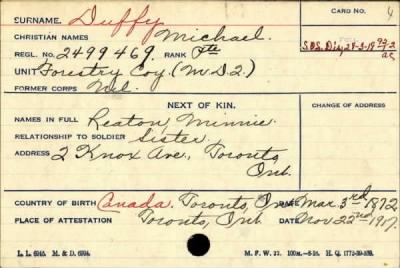 CARD NO. 4
SURNAME. Duffy
CHRISTIAN NAMES Michael.
REGL. NO. 2499469. RANK Pte
UNIT Forestry Coy. (M.D.2)
FORMER CORPS Nil.
NEXT OF KIN.
CHANGE OF ADDRESS
NAMES IN FULL Reaton, Minnie.
RELATIONSHIP TO SOLDIER Sister.
ADDRESS 2 Knox Ave., Toronto,
Ont.
COUNTRY OF BIRTH Canada. Toronto, Ont. DATE Mar. 3rd 1872
PLACE OF ATTESTATION Toronto, Ont. DATE Nov 22nd 1917.
L. L. 6946. M. & D. 6994.
M. F. W. 22. 100m.-8-18. H. Q. 1772-39-839.